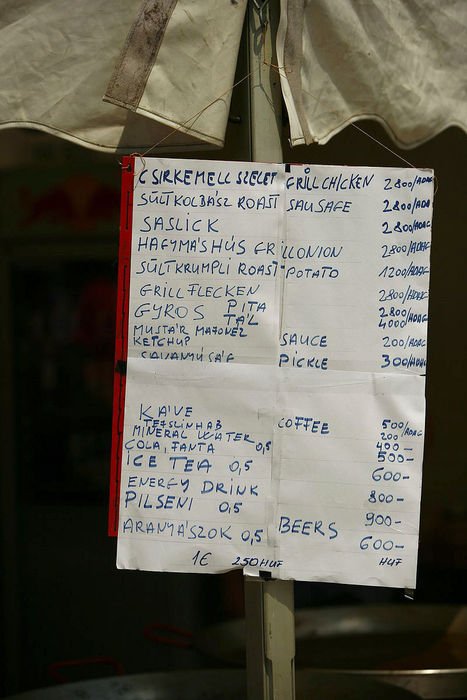 CSIRKEMELL SZELET GRILL CHICKEN 2800/ADAG
SÜLTKOLBÁSZ ROAST SAUSAFE 2800/ADAG
SASLICK 2800/ADAG
HAGYMÁSHÚS GRILLONION 2800/ADAG
SÜLTKRUMPLI ROAST POTATO 1200/ADAG
GRILLFLECKEN 2800/ADAG
GYROS PITA 2800
TÁL 4000/ADAG
MUSTÁR MAJONEZ
KETCHUP SAUCE 200/ADAG
SAVANYÚSÁG PICKLE 300/ADAG
KÁVÉ COFFEE 500/
TEJSZINHAB 200/ADAG
MINERAL WATER 400-
COLA, FANTA 0,5 500-
ICE TEA 0,5 600-
ENERGY DRINK 800-
PILSENI 0,5 900-
ARANYÁSZOK 0,5 BEERS 600-
1€ 250HUF HUF